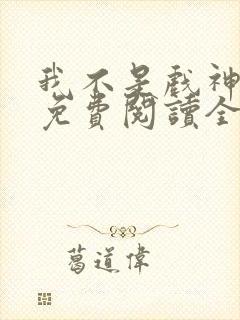 我不是戲神
免費閱讀全
葛道偉